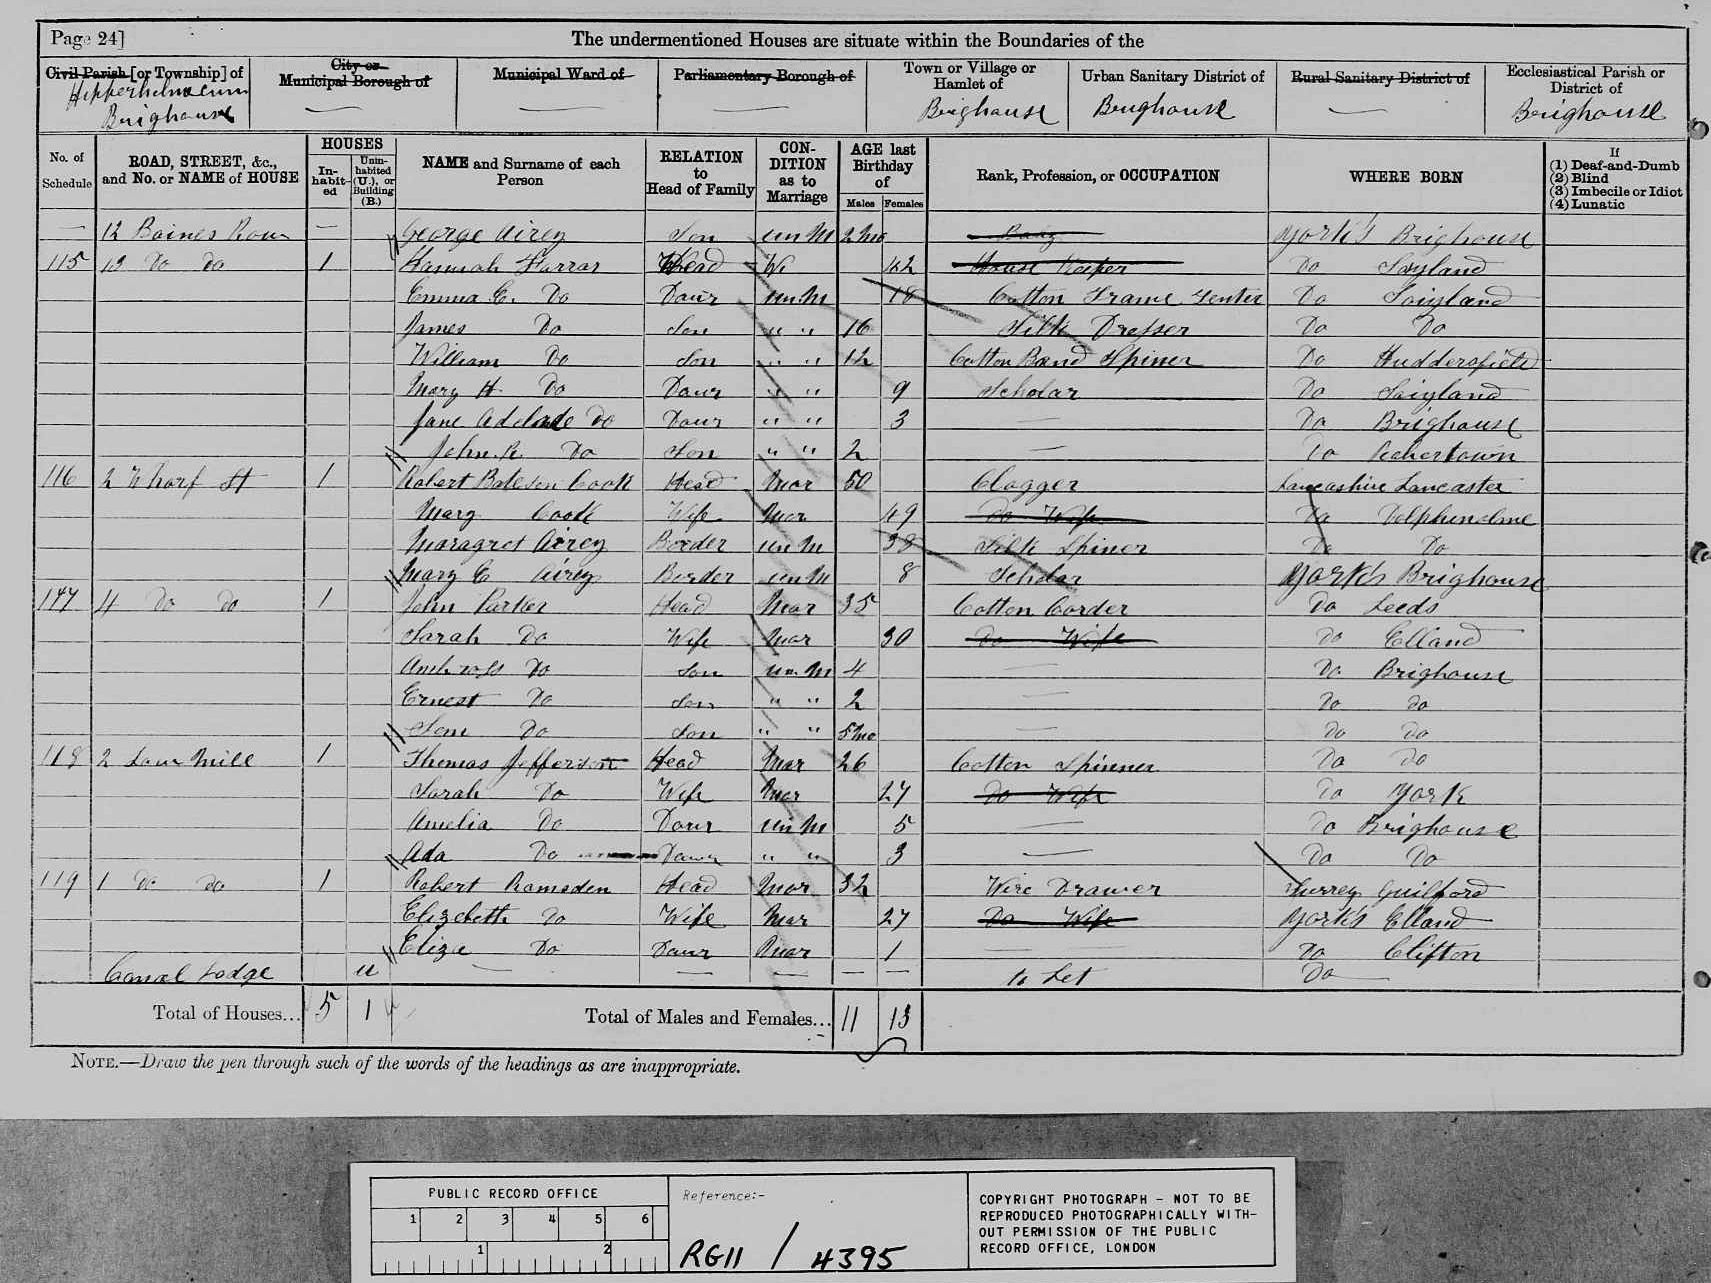 Page 24]
The undermentioned Houses are situate within the Boundaries of the
Civil Parish [or Township] of
City or Municipal Borough of
Municipal Ward of
Parliamentary Borough of
Town or Village or Hamlet of
Urban Sanitary District of
Rural Sanitary District of
Ecclesiastical Parish or District of
Hipperholme cum Brighouse
—
—
—
Brighouse
Brighouse
—
Brighouse
No. of Schedule
ROAD, STREET, &c., and No. or NAME of HOUSE
HOUSES
In-habit-ed
Unin-habited (U.), or Building (B.)
NAME and Surname of each Person
RELATION to Head of Family
CON-DITION as to Marriage
AGE last Birthday of
Males
Females
Rank, Profession, or OCCUPATION
WHERE BORN
If (1) Deaf-and-Dumb (2) Blind (3) Imbecile or Idiot (4) Lunatic
— 12 Baines Row — George Airey Son un M 2mo York's Brighouse
115 13 Do Do 1 Hannah Farrar Head Wi 42 House Keeper Do Soyland
Emma E. Do Daur un M 18 Cotton Frame Tenter Do Soyland
James Do Son " " 16 Silk Dresser Do Do
William Do Son " " 12 Cotton Band Spiner Do Huddersfield
Mary H. Do Daur " " 9 Scholar Do Soyland
Jane Adelade Do Daur " " 3 — Do Brighouse
John R. Do Son " " 2 — Do
116 2 Wharf St 1 Robert Bateson Cook Head Mar 50 Clogger Lancashire Lancaster
Mary Cook Wife Mar 49 Do Wife Do Dolphinolme
Maragret Airey Boeder un M 38 Silk Spiner Do Do
Mary E Airey Border un M 8 Scholar York's Brighouse
117 4 Do Do 1 John Parker Head Mar 35 Cotton Corder Do Leeds
Sarah Do Wife Mar 30 Do Wife Do Elland
Do Son un M 4 — Do Brighouse
Ernest Do Son " " 2 — Do Do
Sam Do Son " " 5mo — Do Do
118 2 Low Mill 1 Thomas Jefferson Head Mar 26 Cotton Spinner Do Do
Sarah Do Wife Mar 27 Do Wife Do York
Amelia Do Daur un M 5 — Do Brighouse
Ada Do Daur " " 3 — Do Do
119 1 Do Do 1 Robert Ramsden Head Mar 32 Wire Drawer Surrey Guilford
Elizebeth Do Wife Mar 27 Do Wife York's Elland
Eliza Do Daur Mar 1 — Do Clifton
Canal Lodge u — — — — — To Let Do —
Total of Houses... 5 1 Total of Males and Females... 11 13
NOTE.—Draw the pen through such of the words of the headings as are inappropriate.
PUBLIC RECORD OFFICE
1 2 3 4 5 6
1 2
Reference:-
RG11 / 4395
COPYRIGHT PHOTOGRAPH - NOT TO BE
REPRODUCED PHOTOGRAPHICALLY WITH-
OUT PERMISSION OF THE PUBLIC
RECORD OFFICE, LONDON